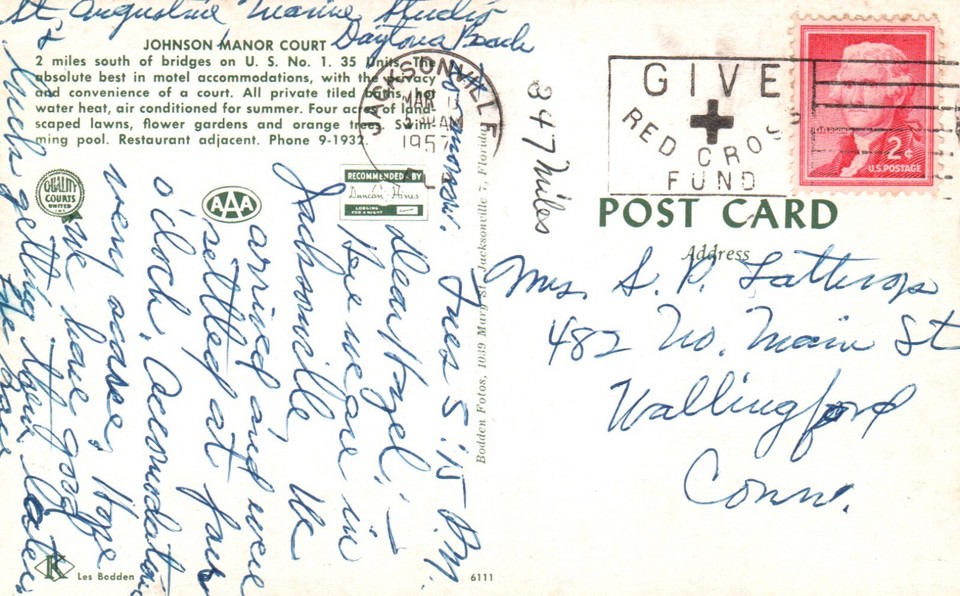 St. Augustine Marine Studio
& Daytona Beach
tomorrow.
JOHNSON MANOR COURT
2 miles south of bridges on U. S. No. 1. 35 Units. The
absolute best in motel accommodations, with the privacy
and convenience of a court. All private tiled baths, hot
water heat, air conditioned for summer. Four acres of land-
scaped lawns, flower gardens and orange trees. Swim-
ming pool. Restaurant adjacent. Phone 9-1932.
QUALITY
COURTS
UNITED
INC
AAA
RECOMMENDED BY
Duncan Hines
LODGING
FOR A NIGHT
Tues 5:15 P.M.
Dear Hazel; —
Here we are in
Jacksonville. We
arrived and were
settled at four
o'clock. Accomodations
very scarce, Hope
we have good
luck getting them later
347 Miles
Bodden Fotos, 1039 Mary St. Jacksonville 7, Florida
K
Les Bodden
6111
JACKSONVILLE
MAR
AM
1957
GIVE
RED CROSS
FUND
2¢
U.S. POSTAGE
POST CARD
Address
Mrs. S. P. Lathrop
482 No. Main St
Wallingford
Conn.